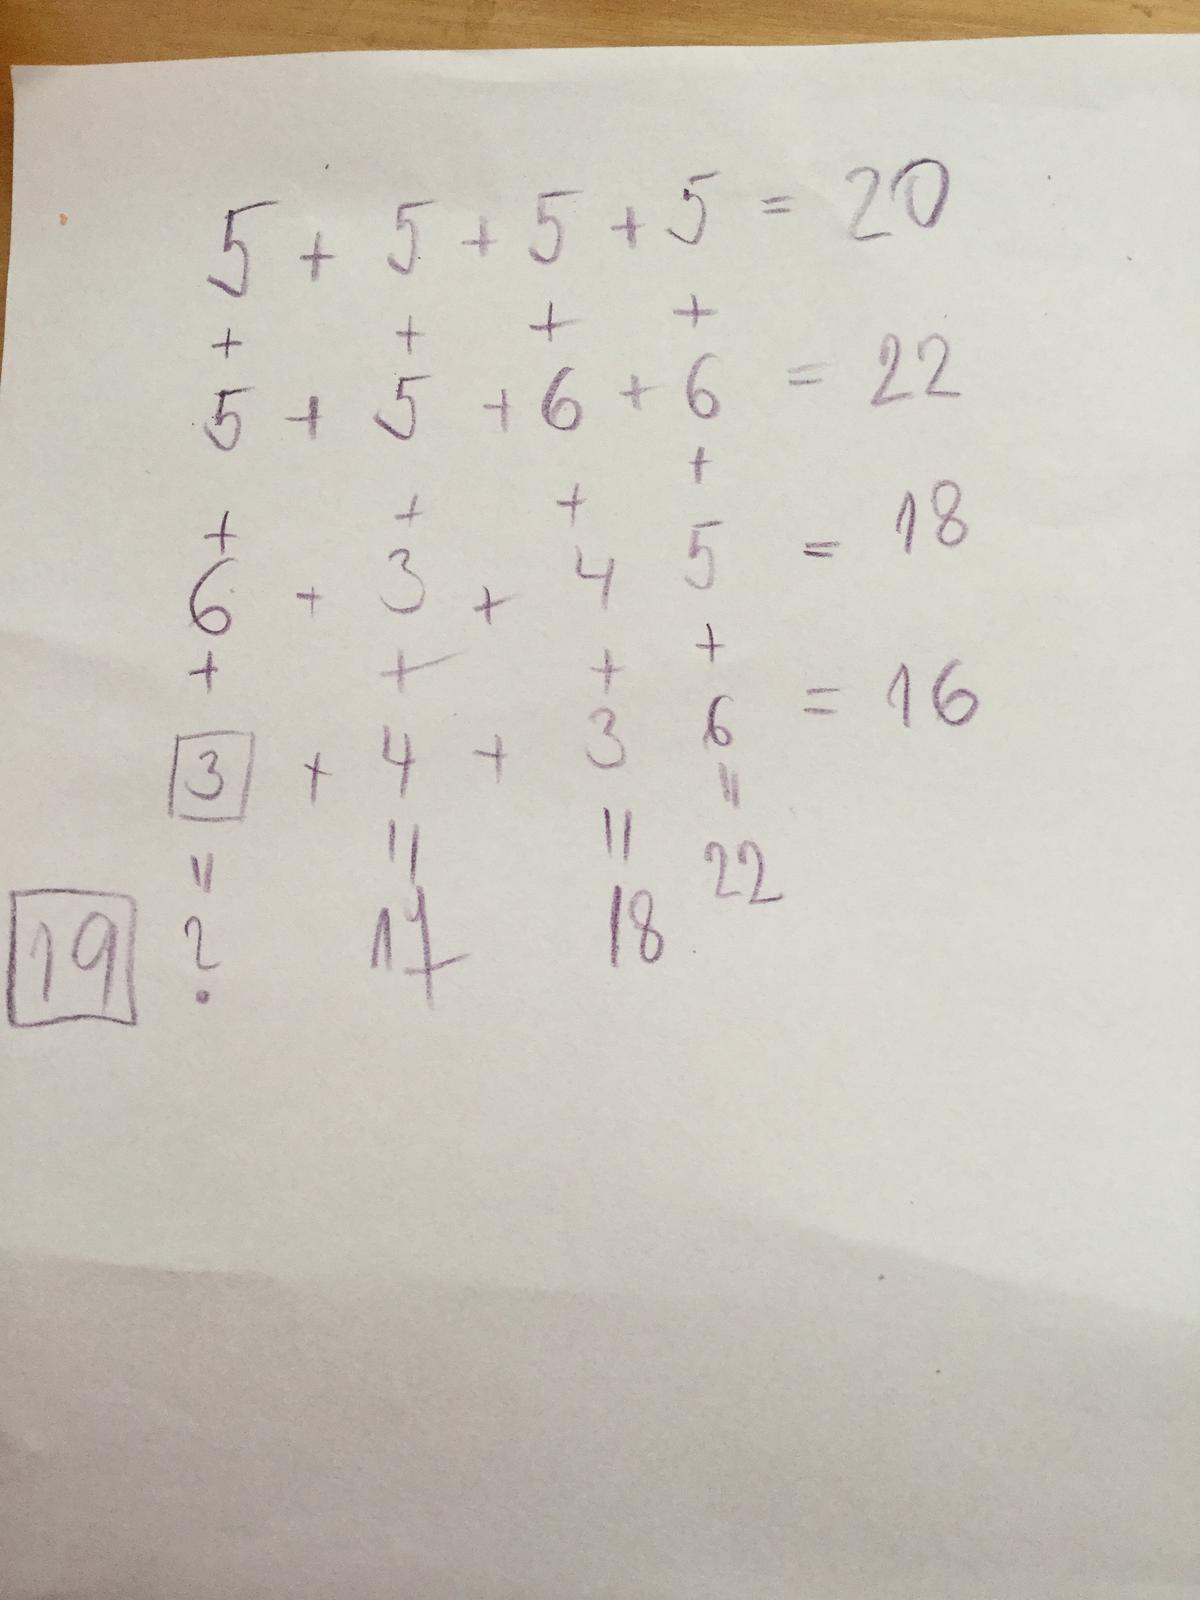 5 + 5 + 5 + 5 = 20
+ + + +
5 + 5 + 6 + 6 = 22
+ + + +
6 + 3 + 4 5 = 18
+ + + +
3 + 4 + 3 6 = 16
= = = =
19 ? 17 18 22